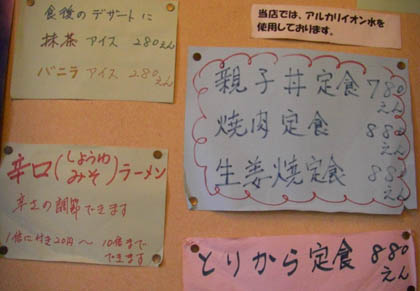 食後のデザートに
抹茶アイス 280えん
バニラアイス 280えん
当店では、アルカリイオン水を
使用しております。
親子丼定食 780えん
焼肉定食 880えん
生姜焼定食 880えん
辛口(しょうゆ みそ)ラーメン
辛さの調節できます
1倍に付き20円〜10倍まで
できます
とりから定食 880えん